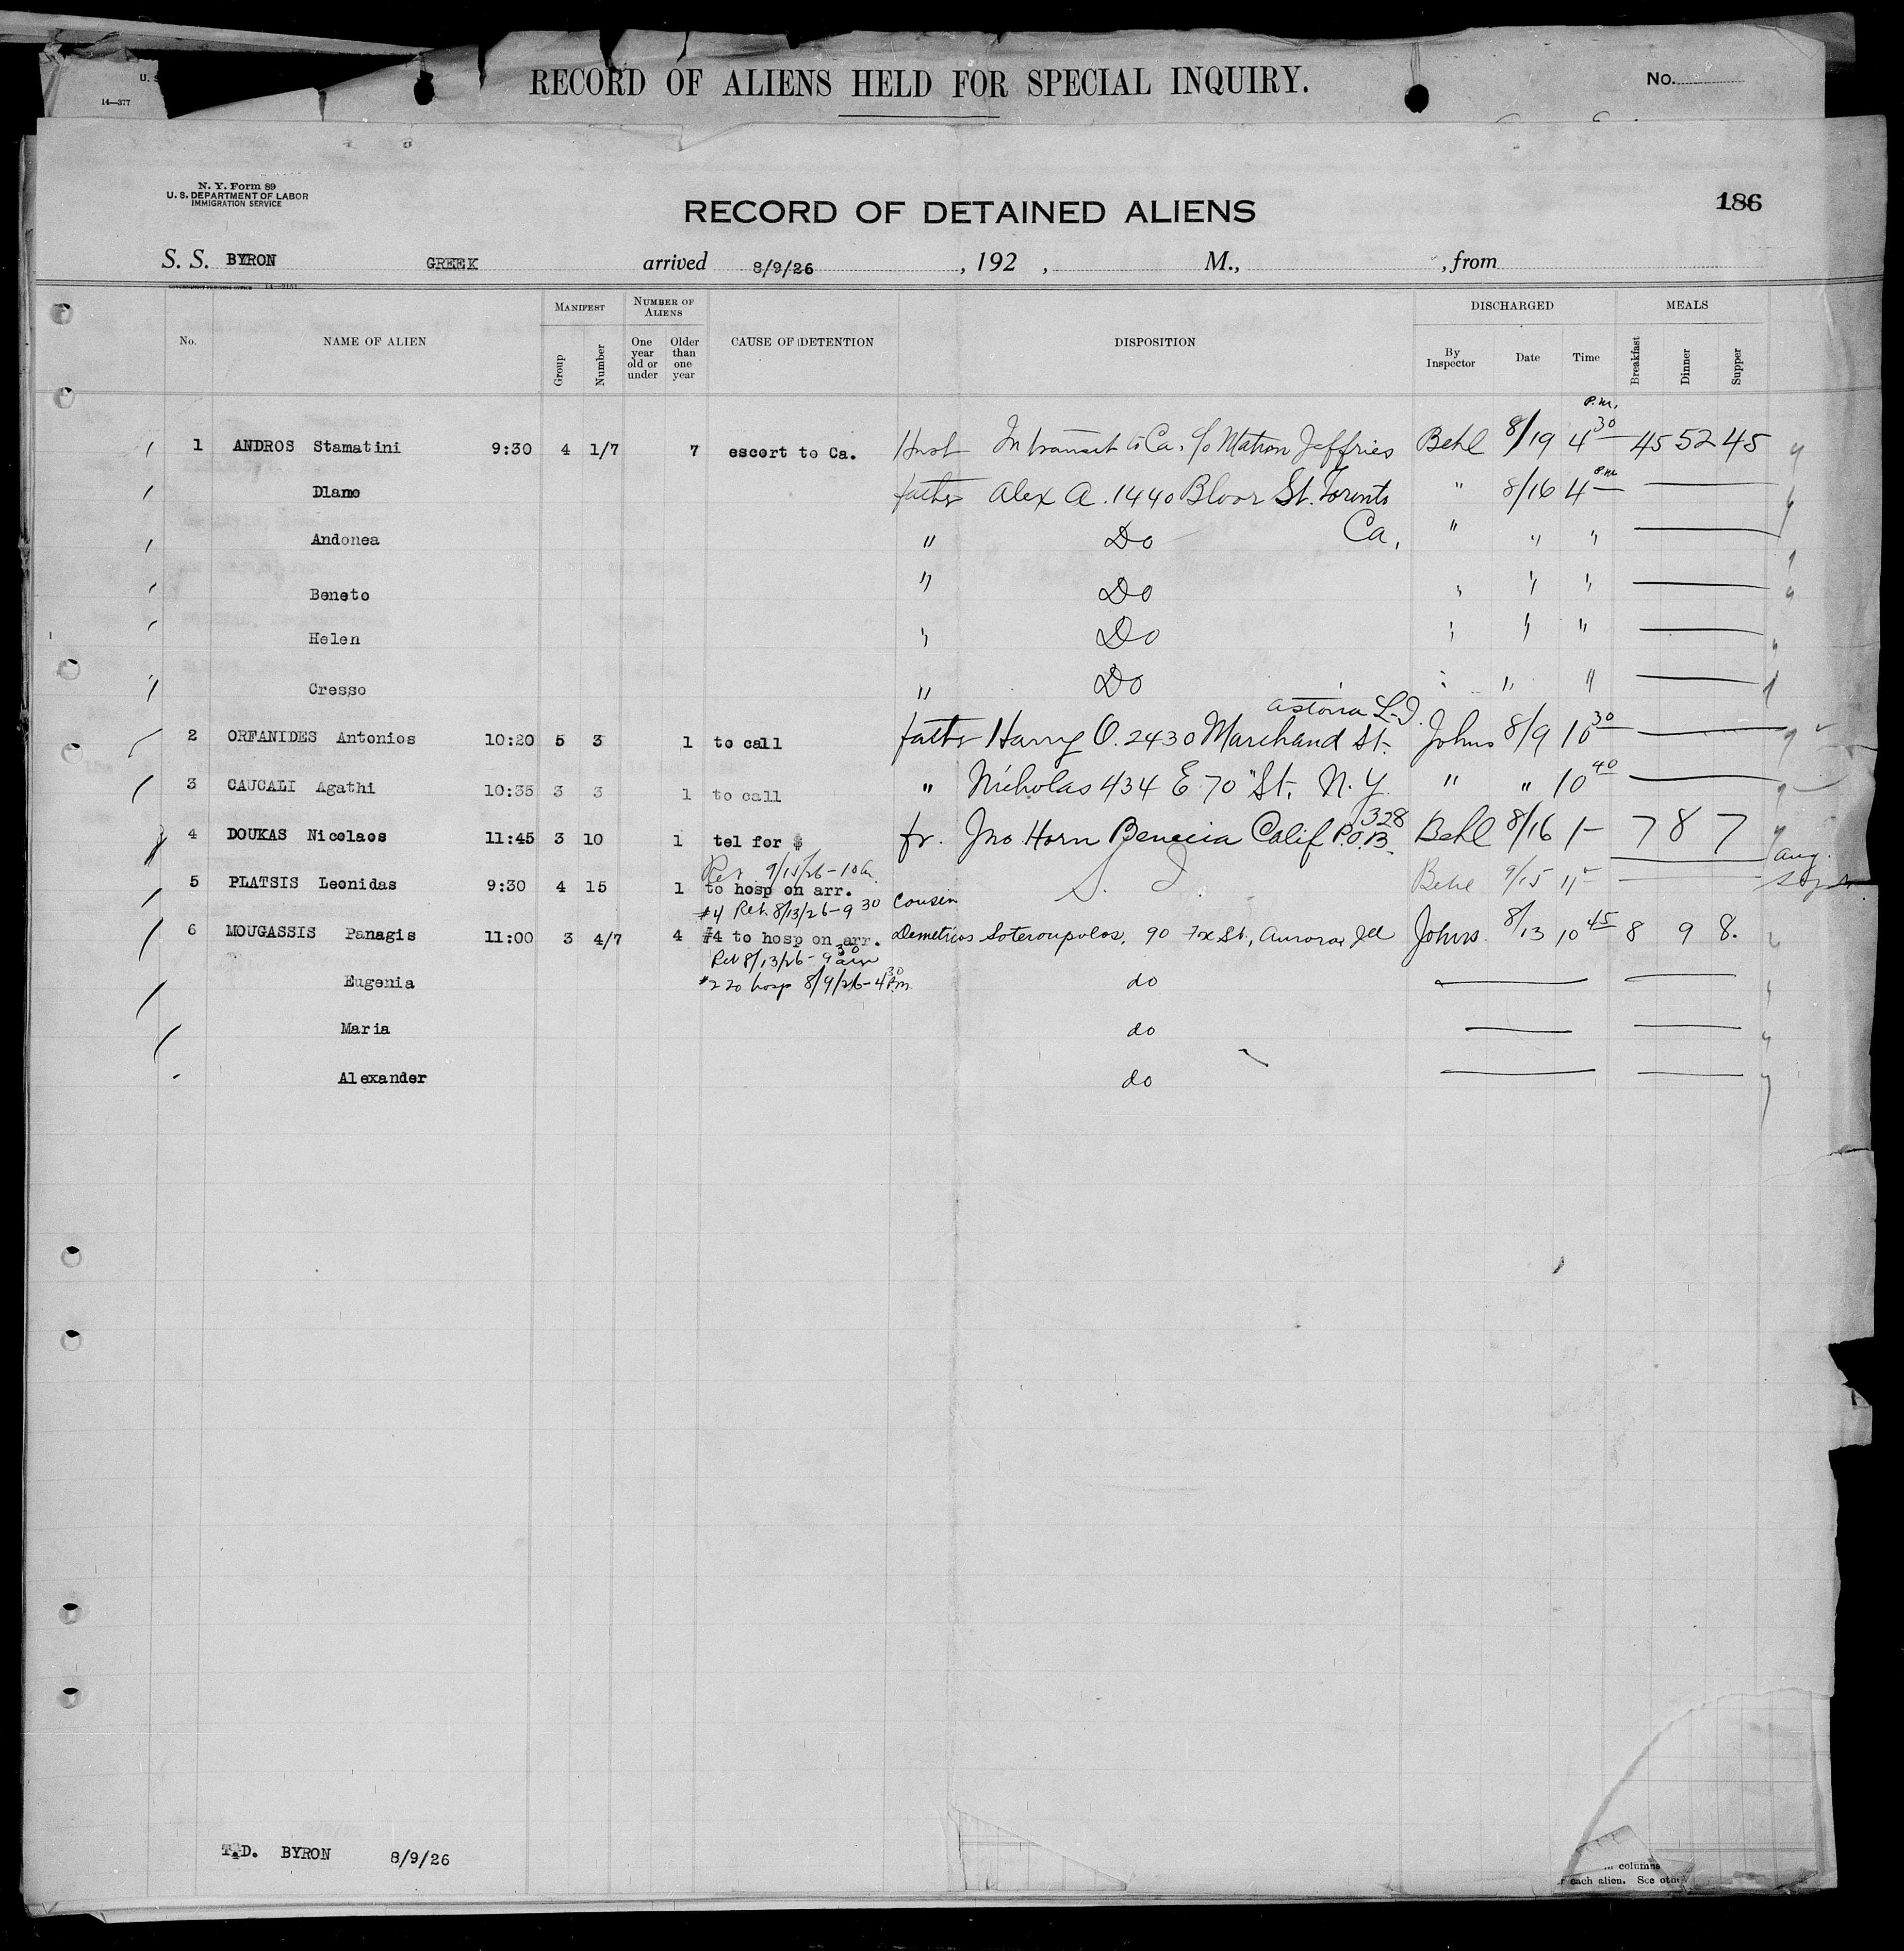 U. S
14—377
RECORD OF ALIENS HELD FOR SPECIAL INQUIRY.
No.
N. Y. Form 89
U. S. DEPARTMENT OF LABOR
IMMIGRATION SERVICE
RECORD OF DETAINED ALIENS
186
S. S. BYRON GREEK arrived 8/9/26 , 192 , M., , from
MANIFEST NUMBER OF ALIENS DISCHARGED MEALS
No. NAME OF ALIEN Group Number One year old or under Older than one year CAUSE OF DETENTION DISPOSITION By Inspector Date Time Breakfast Dinner Supper
1 ANDROS Stamatini 9:30 4 1/7 7 escort to Ca. Husb In transit to Ca. c/o Matron Jeffries Behl 8/19 4 30 P.M. 45 52 45
Dlamo father Alex A. 1440 Bloor St. Toronto " 8/16 4 PM
Andonea " Do Ca, " " "
Beneto " Do " " "
Helen " Do " " "
Cresso " Do " " "
2 ORFANIDES Antonios 10:20 5 3 1 to call father Harry O. 2430 Marchand St. Astoria L.I. Johns 8/9 10 30
3 CAUCALI Agathi 10:35 3 3 1 to call " Nicholas 434 E 70 " St. N.Y. " " 10 40
4 DOUKAS Nicolaos 11:45 3 10 1 tel for $ fr. Jno Horn Benecia Calif P.O.B. 328 Behl 8/16 1 — 7 8 7
Ret 9/15/26 - 10 a. Aug.
5 PLATSIS Leonidas 9:30 4 15 1 to hosp on arr. S. I. Behl 9/15 11 Sept
#4 Ret. 8/13/26 - 9 30 Cousin
6 MOUGASSIS Panagis 11:00 3 4/7 4 #4 to hosp on arr. Demetrios Soteroupolos, 90 Fox St., Aurora, Ill Johns. 8/13 10 45 8 9 8.
Ret 8/13/26 - 9 30 am
Eugenia #2 to hosp 8/9/26 - 4 30 P.m. do
Maria do
Alexander do
T.D. BYRON 8/9/26
... columns
each alien. See othe